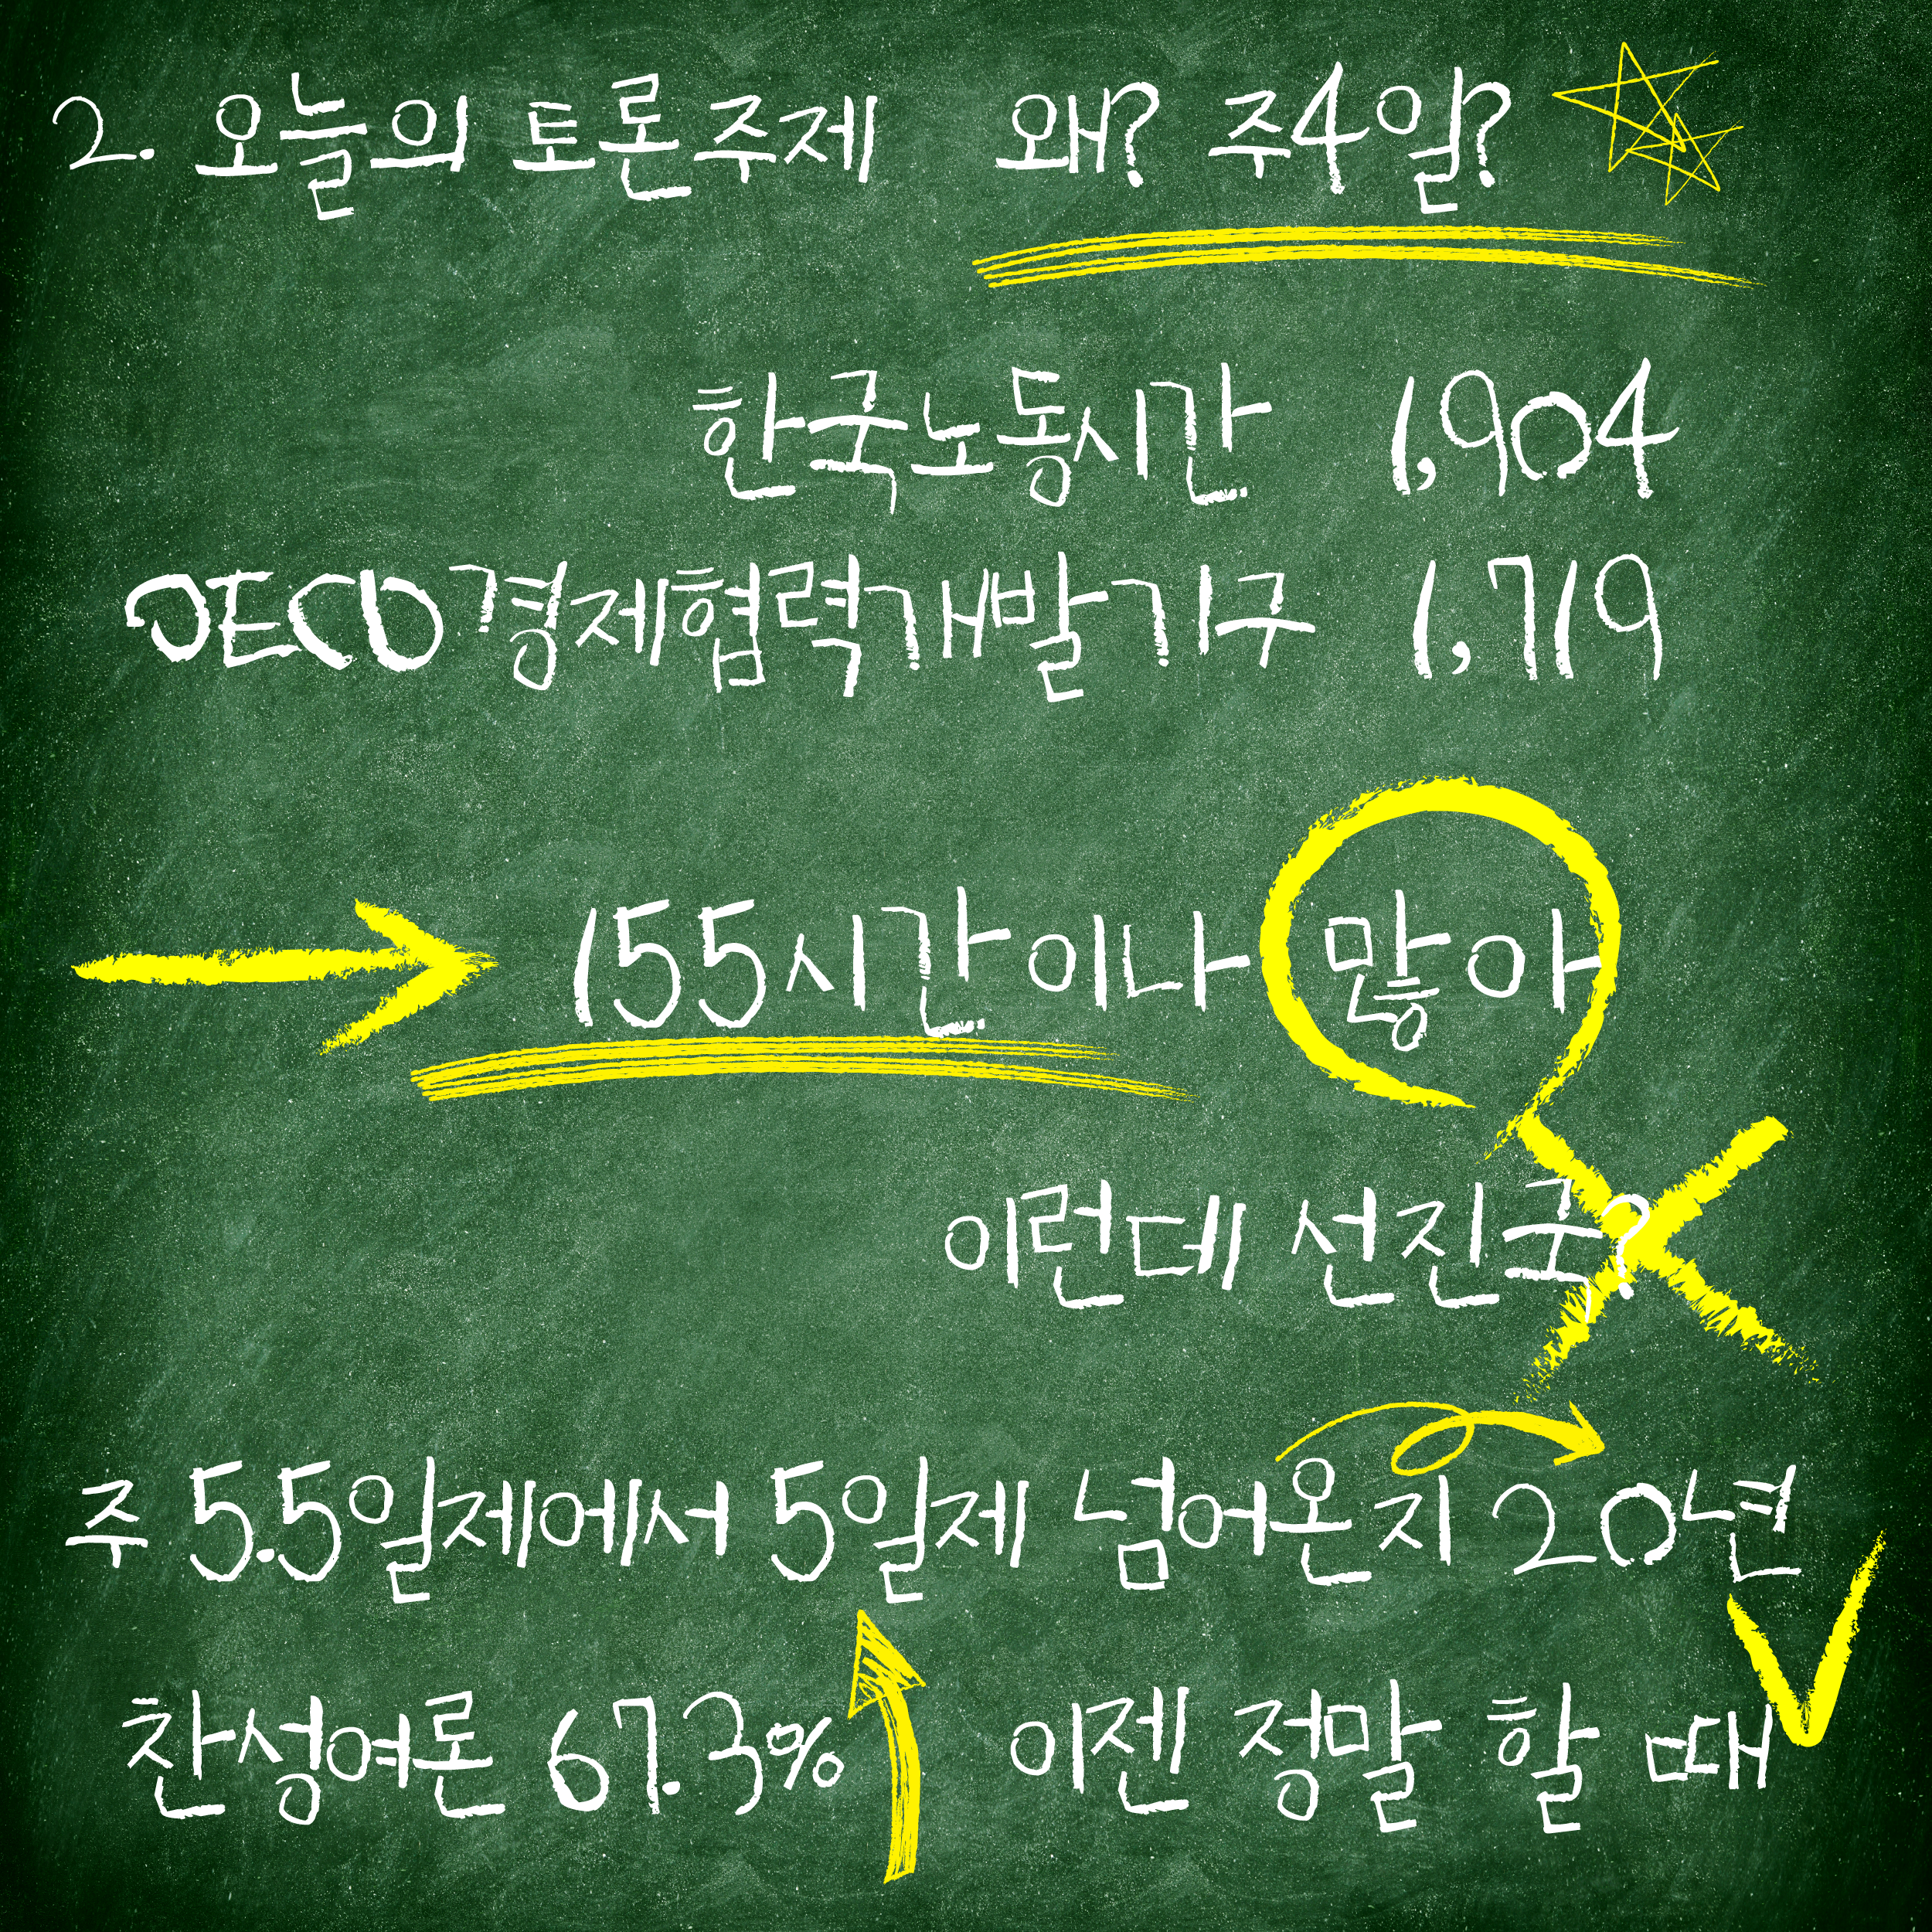 2. 오늘의 토론주제 왜? 주4일?
한국노동시간 1,904
OECD경제협력개발기구 1,719
155시간이나 많아
이런데 선진국?
주 5.5일제에서 5일제 넘어온지 20년
찬성여론 67.3% 이젠 정말 할 때